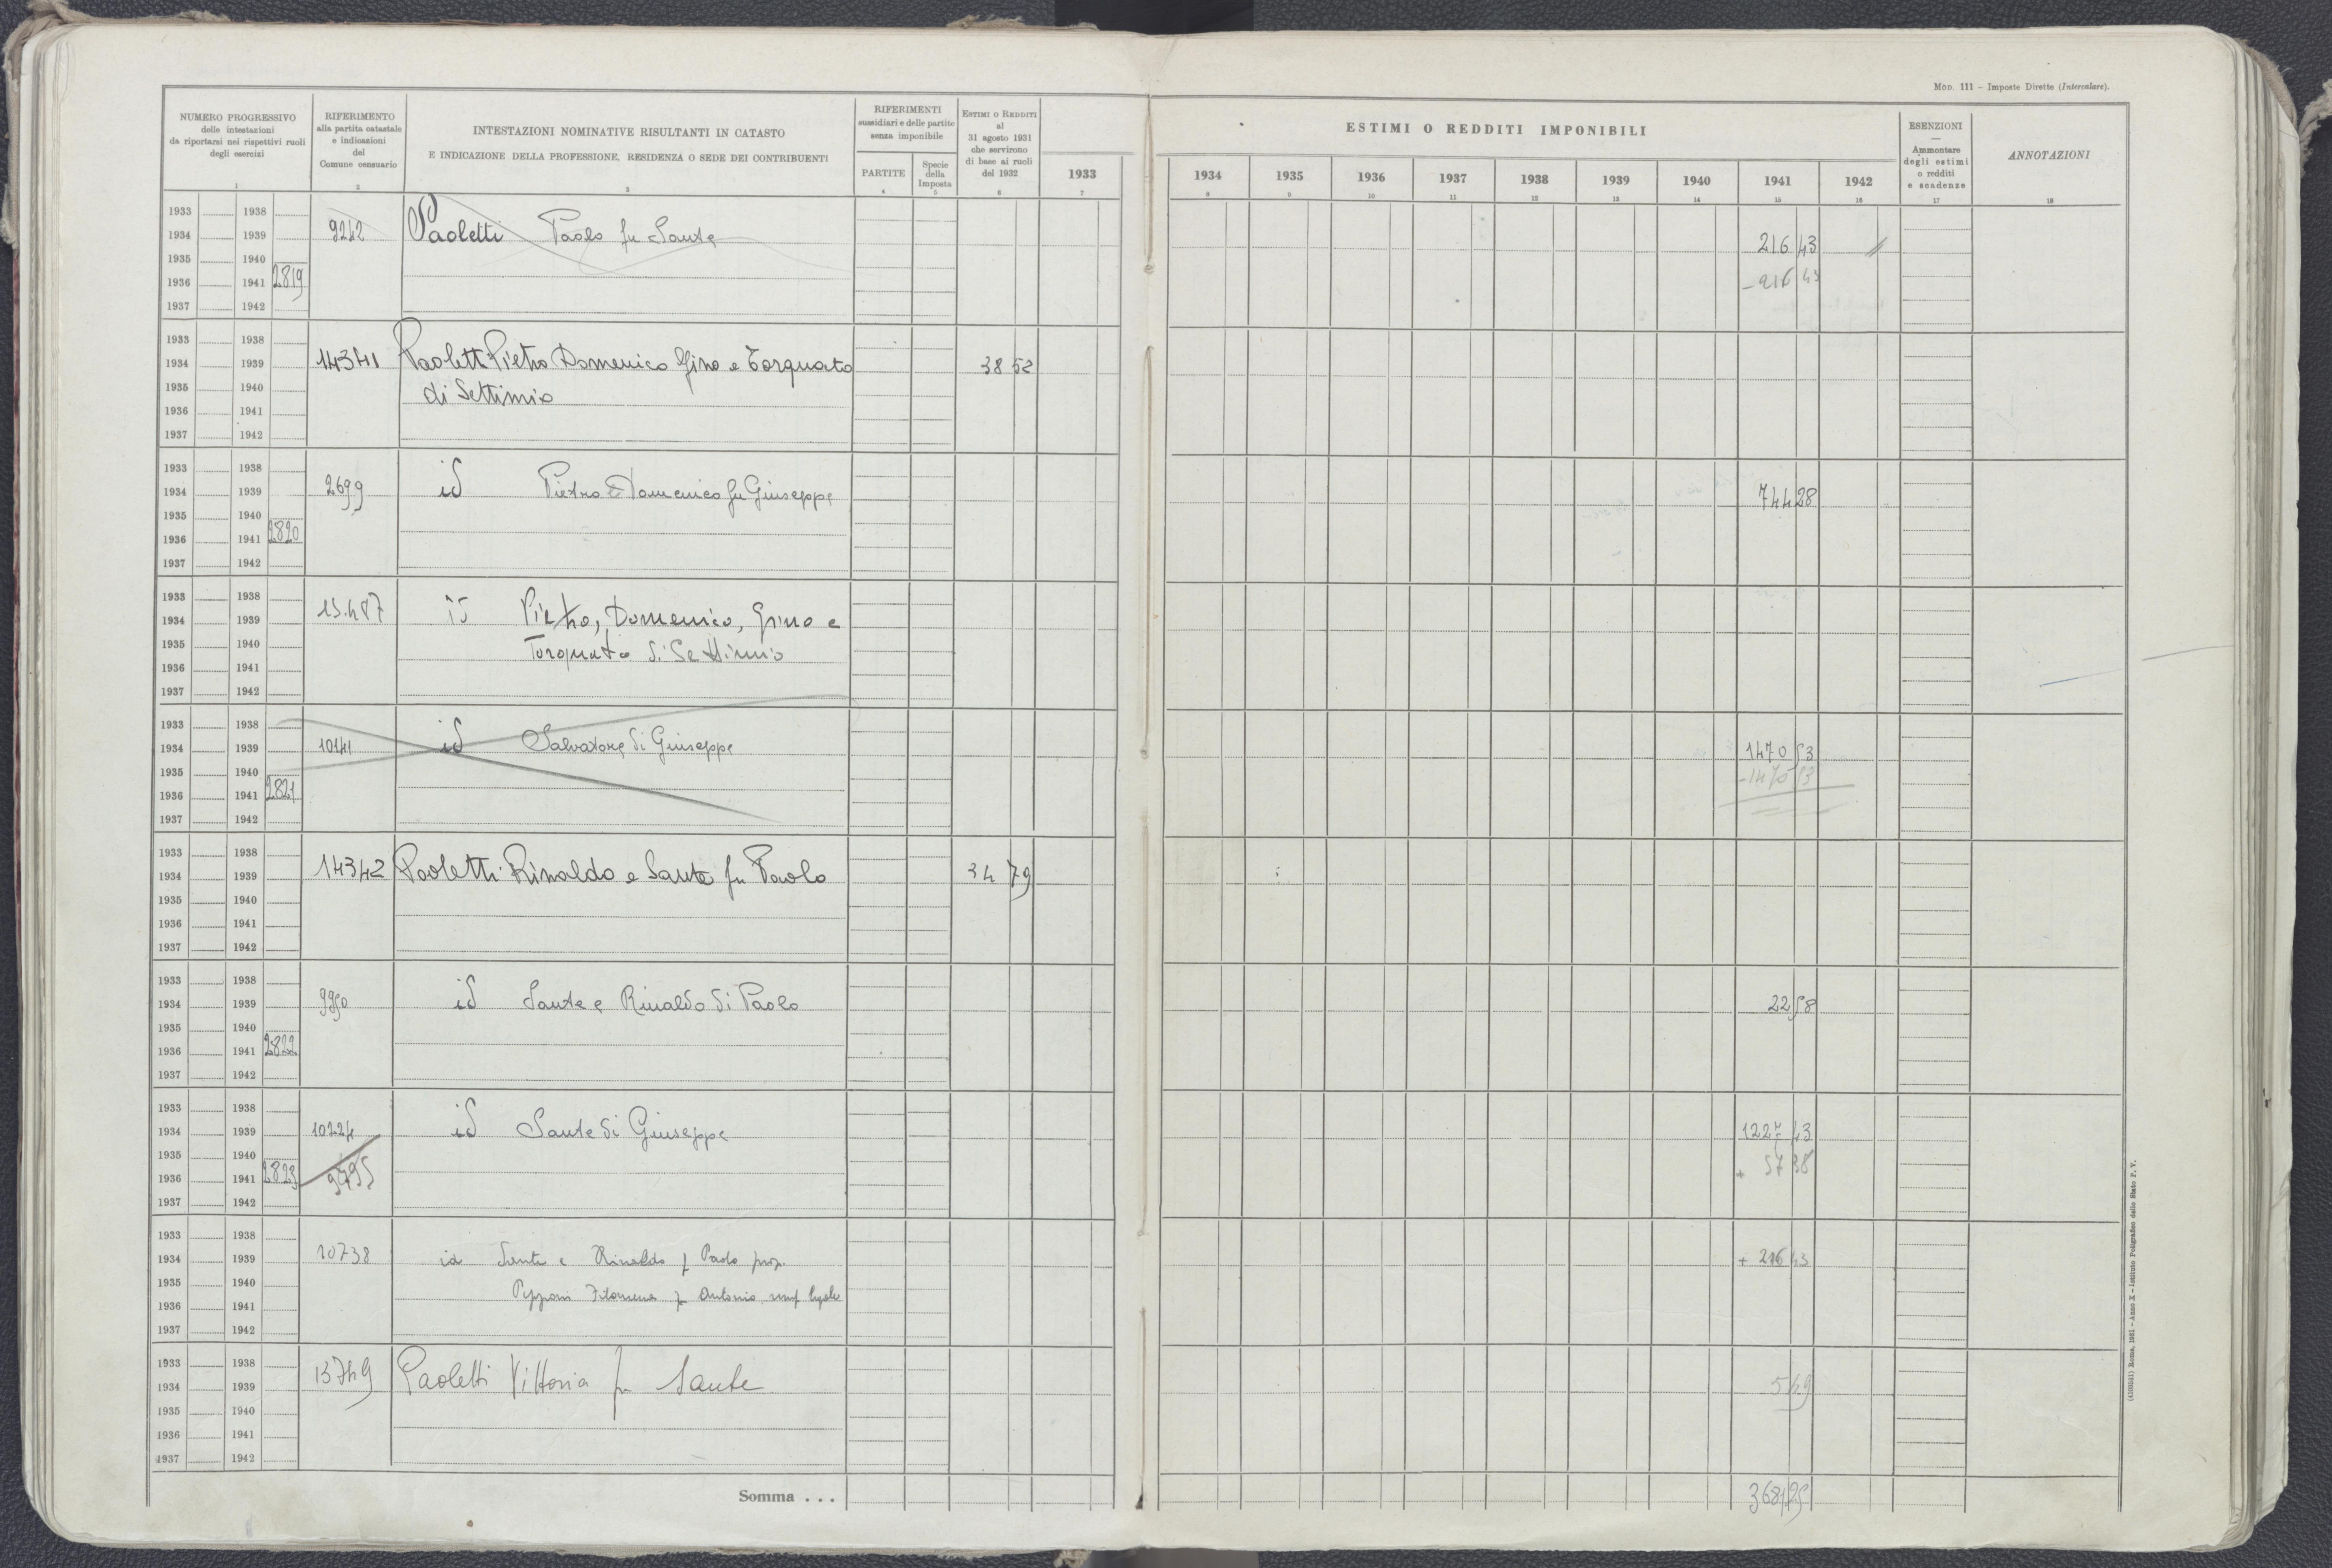 Mod. 111 – Imposte Dirette (Intercalare).
NUMERO PROGRESSIVO
delle intestazioni
da riportarsi nei rispettivi ruoli
degli esercizi
1
RIFERIMENTO
alla partita catastale
e indicazioni
del
Comune censuario
2
INTESTAZIONI NOMINATIVE RISULTANTI IN CATASTO
E INDICAZIONE DELLA PROFESSIONE, RESIDENZA O SEDE DEI CONTRIBUENTI
3
RIFERIMENTI
sussidiari e delle partite
senza imponibile
PARTITE
4
Specie
della
Imposta
5
Estimi o Redditi
al
31 agosto 1931
che servirono
di base ai ruoli
del 1932
6
1933
7
ESTIMI O REDDITI IMPONIBILI
1934 1935 1936 1937 1938 1939 1940 1941 1942
8 9 10 11 12 13 14 15 16
ESENZIONI
—
Ammontare
degli estimi
o redditi
e scadenze
17
ANNOTAZIONI
18
1933 1938
1934 1939 9242 Paoletti Paolo fu Sante 216 43
1935 1940
1936 1941 2819 – 216 43
1937 1942
1933 1938
1934 1939 14341 Paoletti Pietro Domenico Gino e Torquato 38 52
1935 1940 di Settimio
1936 1941
1937 1942
1933 1938
1934 1939 2699 id Pietro e Domenico fu Giuseppe 744 28
1935 1940
1936 1941 2820
1937 1942
1933 1938
1934 1939 15.487 id Pietro, Domenico, Gino e
1935 1940 Torquato di Settimio
1936 1941
1937 1942
1933 1938
1934 1939 10141 id Salvatore di Giuseppe 1470 53
1935 1940 – 1470 53
1936 1941 2821
1937 1942
1933 1938
1934 1939 14342 Paoletti Rinaldo e Sante fu Paolo 34 79
1935 1940
1936 1941
1937 1942
1933 1938
1934 1939 9950 id Sante e Rinaldo di Paolo 22 58
1935 1940
1936 1941 2822
1937 1942
1933 1938
1934 1939 10224 id Sante di Giuseppe 1227 43
1935 1940 + 57 38
1936 1941 2823 9795
1937 1942
1933 1938
1934 1939 10738 id Sante e Rinaldo f Paolo prop.
+ 216 43
1935 1940
1936 1941 Filomena f Antonio
1937 1942
1933 1938
1934 1939 13749 Paoletti Vittoria fu Sante 5 49
1935 1940
1936 1941
1937 1942
Somma . . . 3681 25
Roma, 1931 – Anno X – Istituto Poligrafico dello Stato P. V.